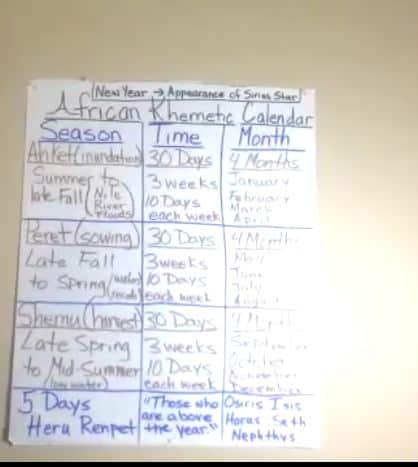 New Year → Appearance of Sirius Star
African Khemetic Calendar
Season Time Month
Ahket (inundation) 30 Days 4 Months
Summer to 3 weeks January
late Fall (Nile River Floods) 10 Days February
each week March
April
Peret (sowing) 30 Days 4 Months
Late Fall 3 weeks May
to Spring 10 Days June
each week July
August
Shemu (harvest) 30 Days 4 Month
Late Spring 3 weeks September
to Mid-Summer 10 Days October
(low water) each week November
December
5 Days "Those who Osiris Isis
Heru Renpet are above Horus Seth
the year." Nephthys